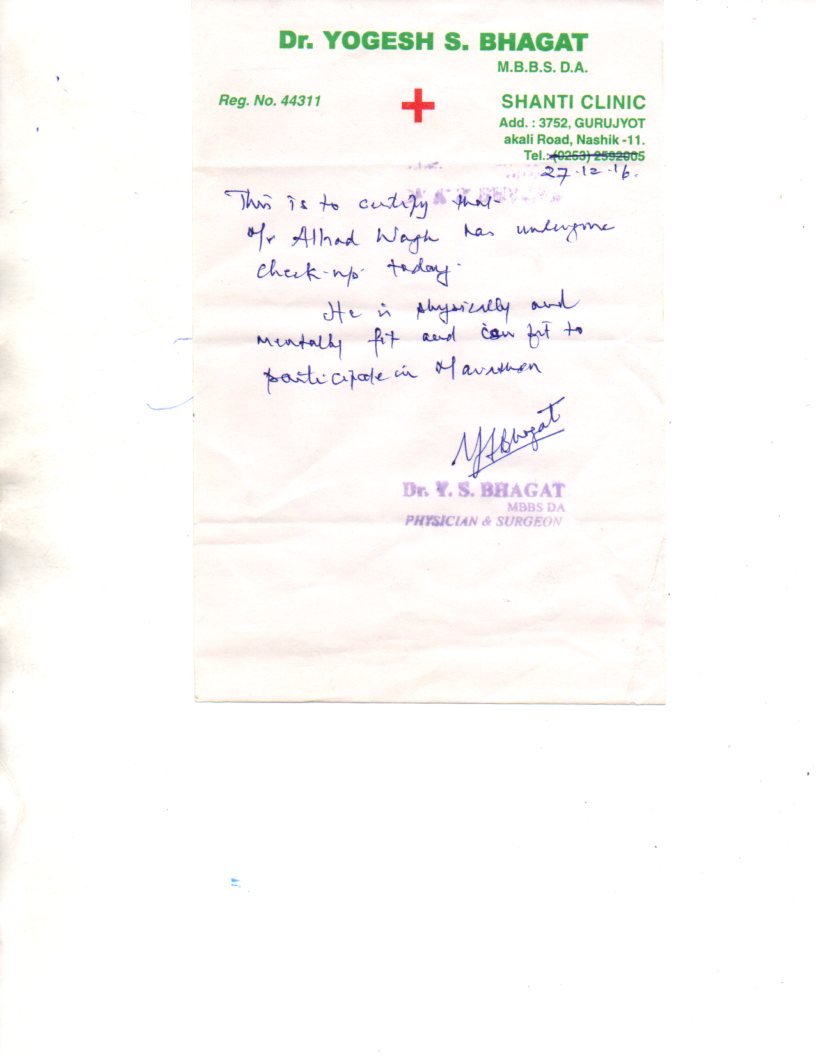 Dr. YOGESH S. BHAGAT
M.B.B.S. D.A.
Reg. No. 44311
SHANTI CLINIC
Add. : 3752, GURUJYOT
akali Road, Nashik -11.
Tel.: (0253) 2592005
27-12-16.
This is to certify that
Mr Alhad Wagh has undergone
check-up today.
He is physically and
mentally fit and can fit to
participate in Marathon
YSBhagat
Dr. Y. S. BHAGAT
MBBS DA
PHYSICIAN & SURGEON